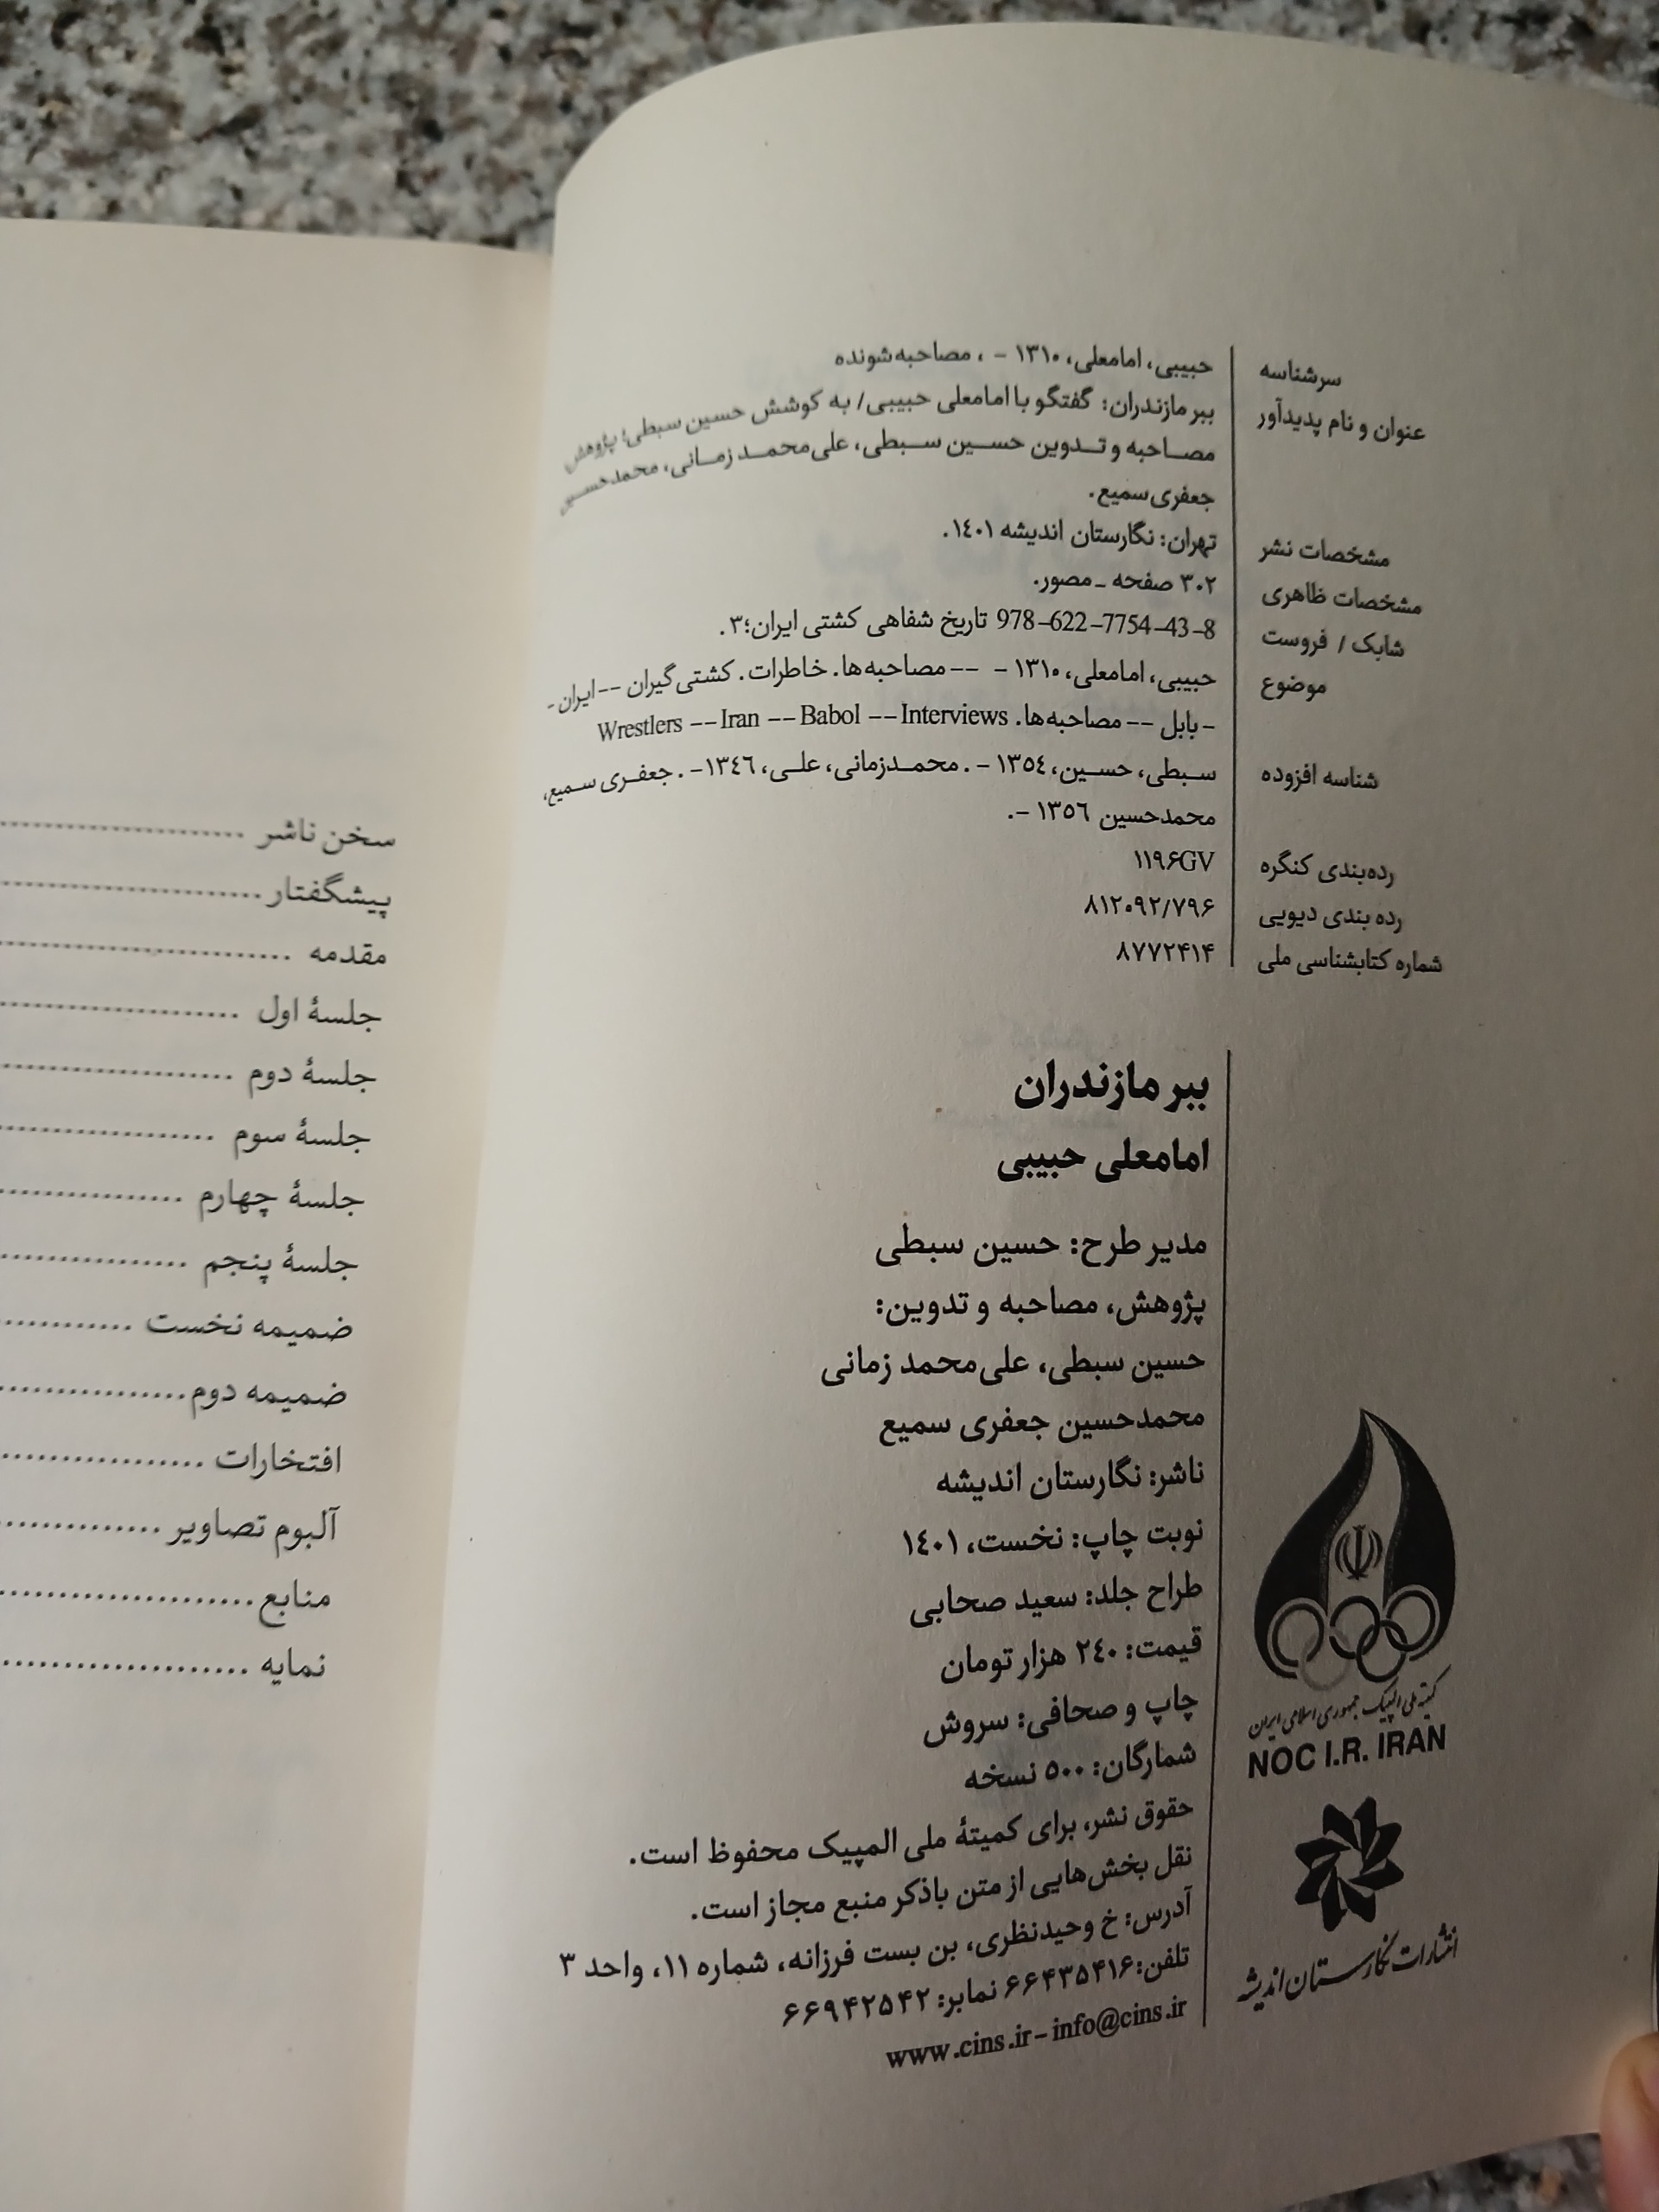 سرشناسه حبیبی، امامعلی، ۱۳۱۰ - ، مصاحبه‌شونده
عنوان و نام پدیدآور ببر مازندران: گفتگو با امامعلی حبیبی/ به کوشش حسین سبطی؛ پژوهش
مصاحبه و تدوین حسین سبطی، علی‌محمد زمانی، محمدحسین
جعفری سمیع.
مشخصات نشر تهران: نگارستان اندیشه ۱۴۰۱.
مشخصات ظاهری ۳۰۲ صفحه ـ مصور.
شابک / فروست 978-622-7754-43-8 تاریخ شفاهی کشتی ایران؛۳.
موضوع حبیبی، امامعلی، ۱۳۱۰ - -- مصاحبه‌ها. خاطرات. کشتی‌گیران -- ایران -
- بابل -- مصاحبه‌ها. Wrestlers -- Iran -- Babol -- Interviews
شناسه افزوده سبطی، حسین، ۱۳۵۴ - . محمدزمانی، علی، ۱۳۴۶- . جعفری سمیع،
محمدحسین ۱۳۵۶ -.
رده‌بندی کنگره ۱۱۹۶GV
رده بندی دیویی ۸۱۲۰۹۲/۷۹۶
شماره کتابشناسی ملی ۸۷۷۲۴۱۴
ببر مازندران
امامعلی حبیبی
مدیر طرح: حسین سبطی
پژوهش، مصاحبه و تدوین:
حسین سبطی، علی‌محمد زمانی
محمدحسین جعفری سمیع
ناشر: نگارستان اندیشه
نوبت چاپ: نخست، ۱۴۰۱
طراح جلد: سعید صحابی
قیمت: ۲۴۰ هزار تومان
چاپ و صحافی: سروش
شمارگان: ۵۰۰ نسخه
حقوق نشر، برای کمیتهٔ ملی المپیک محفوظ است.
نقل بخش‌هایی از متن باذکر منبع مجاز است.
آدرس: خ وحیدنظری، بن بست فرزانه، شماره ۱۱، واحد ۳
تلفن: ۶۶۴۳۵۴۱۶ نمابر: ۶۶۹۴۲۵۴۲
www.cins.ir - info@cins.ir
کمیته ملی المپیک جمهوری اسلامی ایران
NOC I.R. IRAN
انتشارات نگارستان اندیشه
سخن ناشر
پیشگفتار
مقدمه
جلسهٔ اول
جلسهٔ دوم
جلسهٔ سوم
جلسهٔ چهارم
جلسهٔ پنجم
ضمیمه نخست
ضمیمه دوم
افتخارات
آلبوم تصاویر
منابع
نمایه